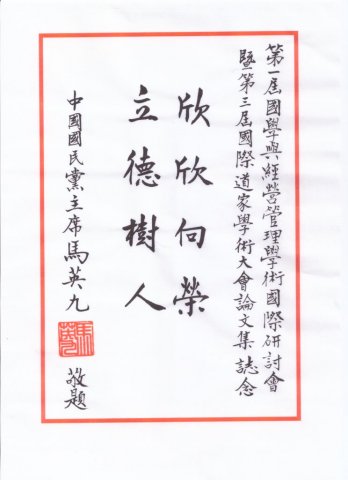 第一屆國學與經營管理學術國際研討會
暨第三屆國際道家學術大會論文集誌念
欣欣向榮
立德樹人
中國國民黨主席馬英九
敬題